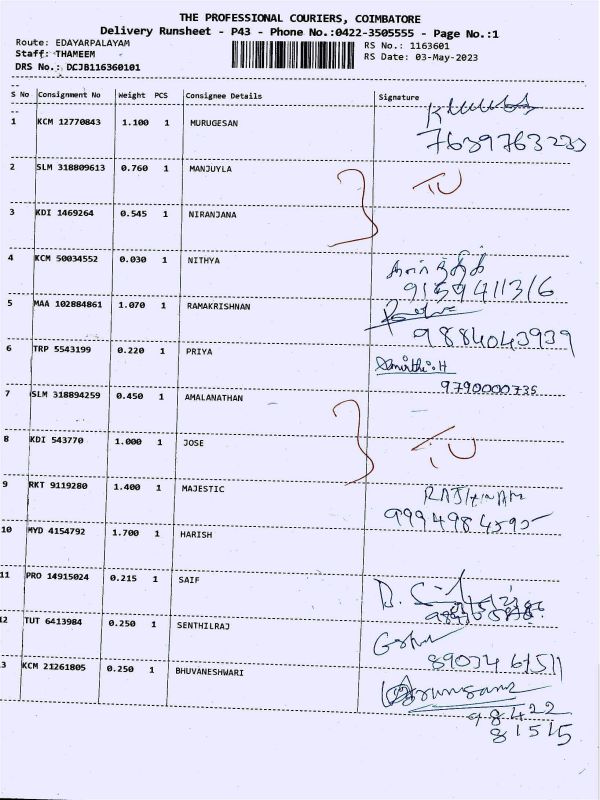 THE PROFESSIONAL COURIERS, COIMBATORE
Delivery Runsheet - P43 - Phone No.:0422-3505555 - Page No.:1
Route: EDAYARPALAYAM RS No.: 1163601
Staff: THAMEEM RS Date: 03-May-2023
DRS No.: DCJB116360101
S No Consignment No Weight PCS Consignee Details Signature
1 KCM 12770843 1.100 1 MURUGESAN
7639763233
2 SLM 318809613 0.760 1 MANJUYLA
3 KDI 1469264 0.545 1 NIRANJANA
4 KCM 50034552 0.030 1 NITHYA
9159411316
5 MAA 102884861 1.070 1 RAMAKRISHNAN
9884043939
6 TRP 5543199 0.220 1 PRIYA
9790000735
7 SLM 318894259 0.450 1 AMALANATHAN
8 KDI 543770 1.000 1 JOSE
9 RKT 9119280 1.400 1 MAJESTIC
10 MYD 4154792 1.700 1 HARISH
11 PRO 14915024 0.215 1 SAIF
12 TUT 6413984 0.250 1 SENTHILRAJ
8903461511
13 KCM 21261805 0.250 1 BHUVANESHWARI
98422
81515